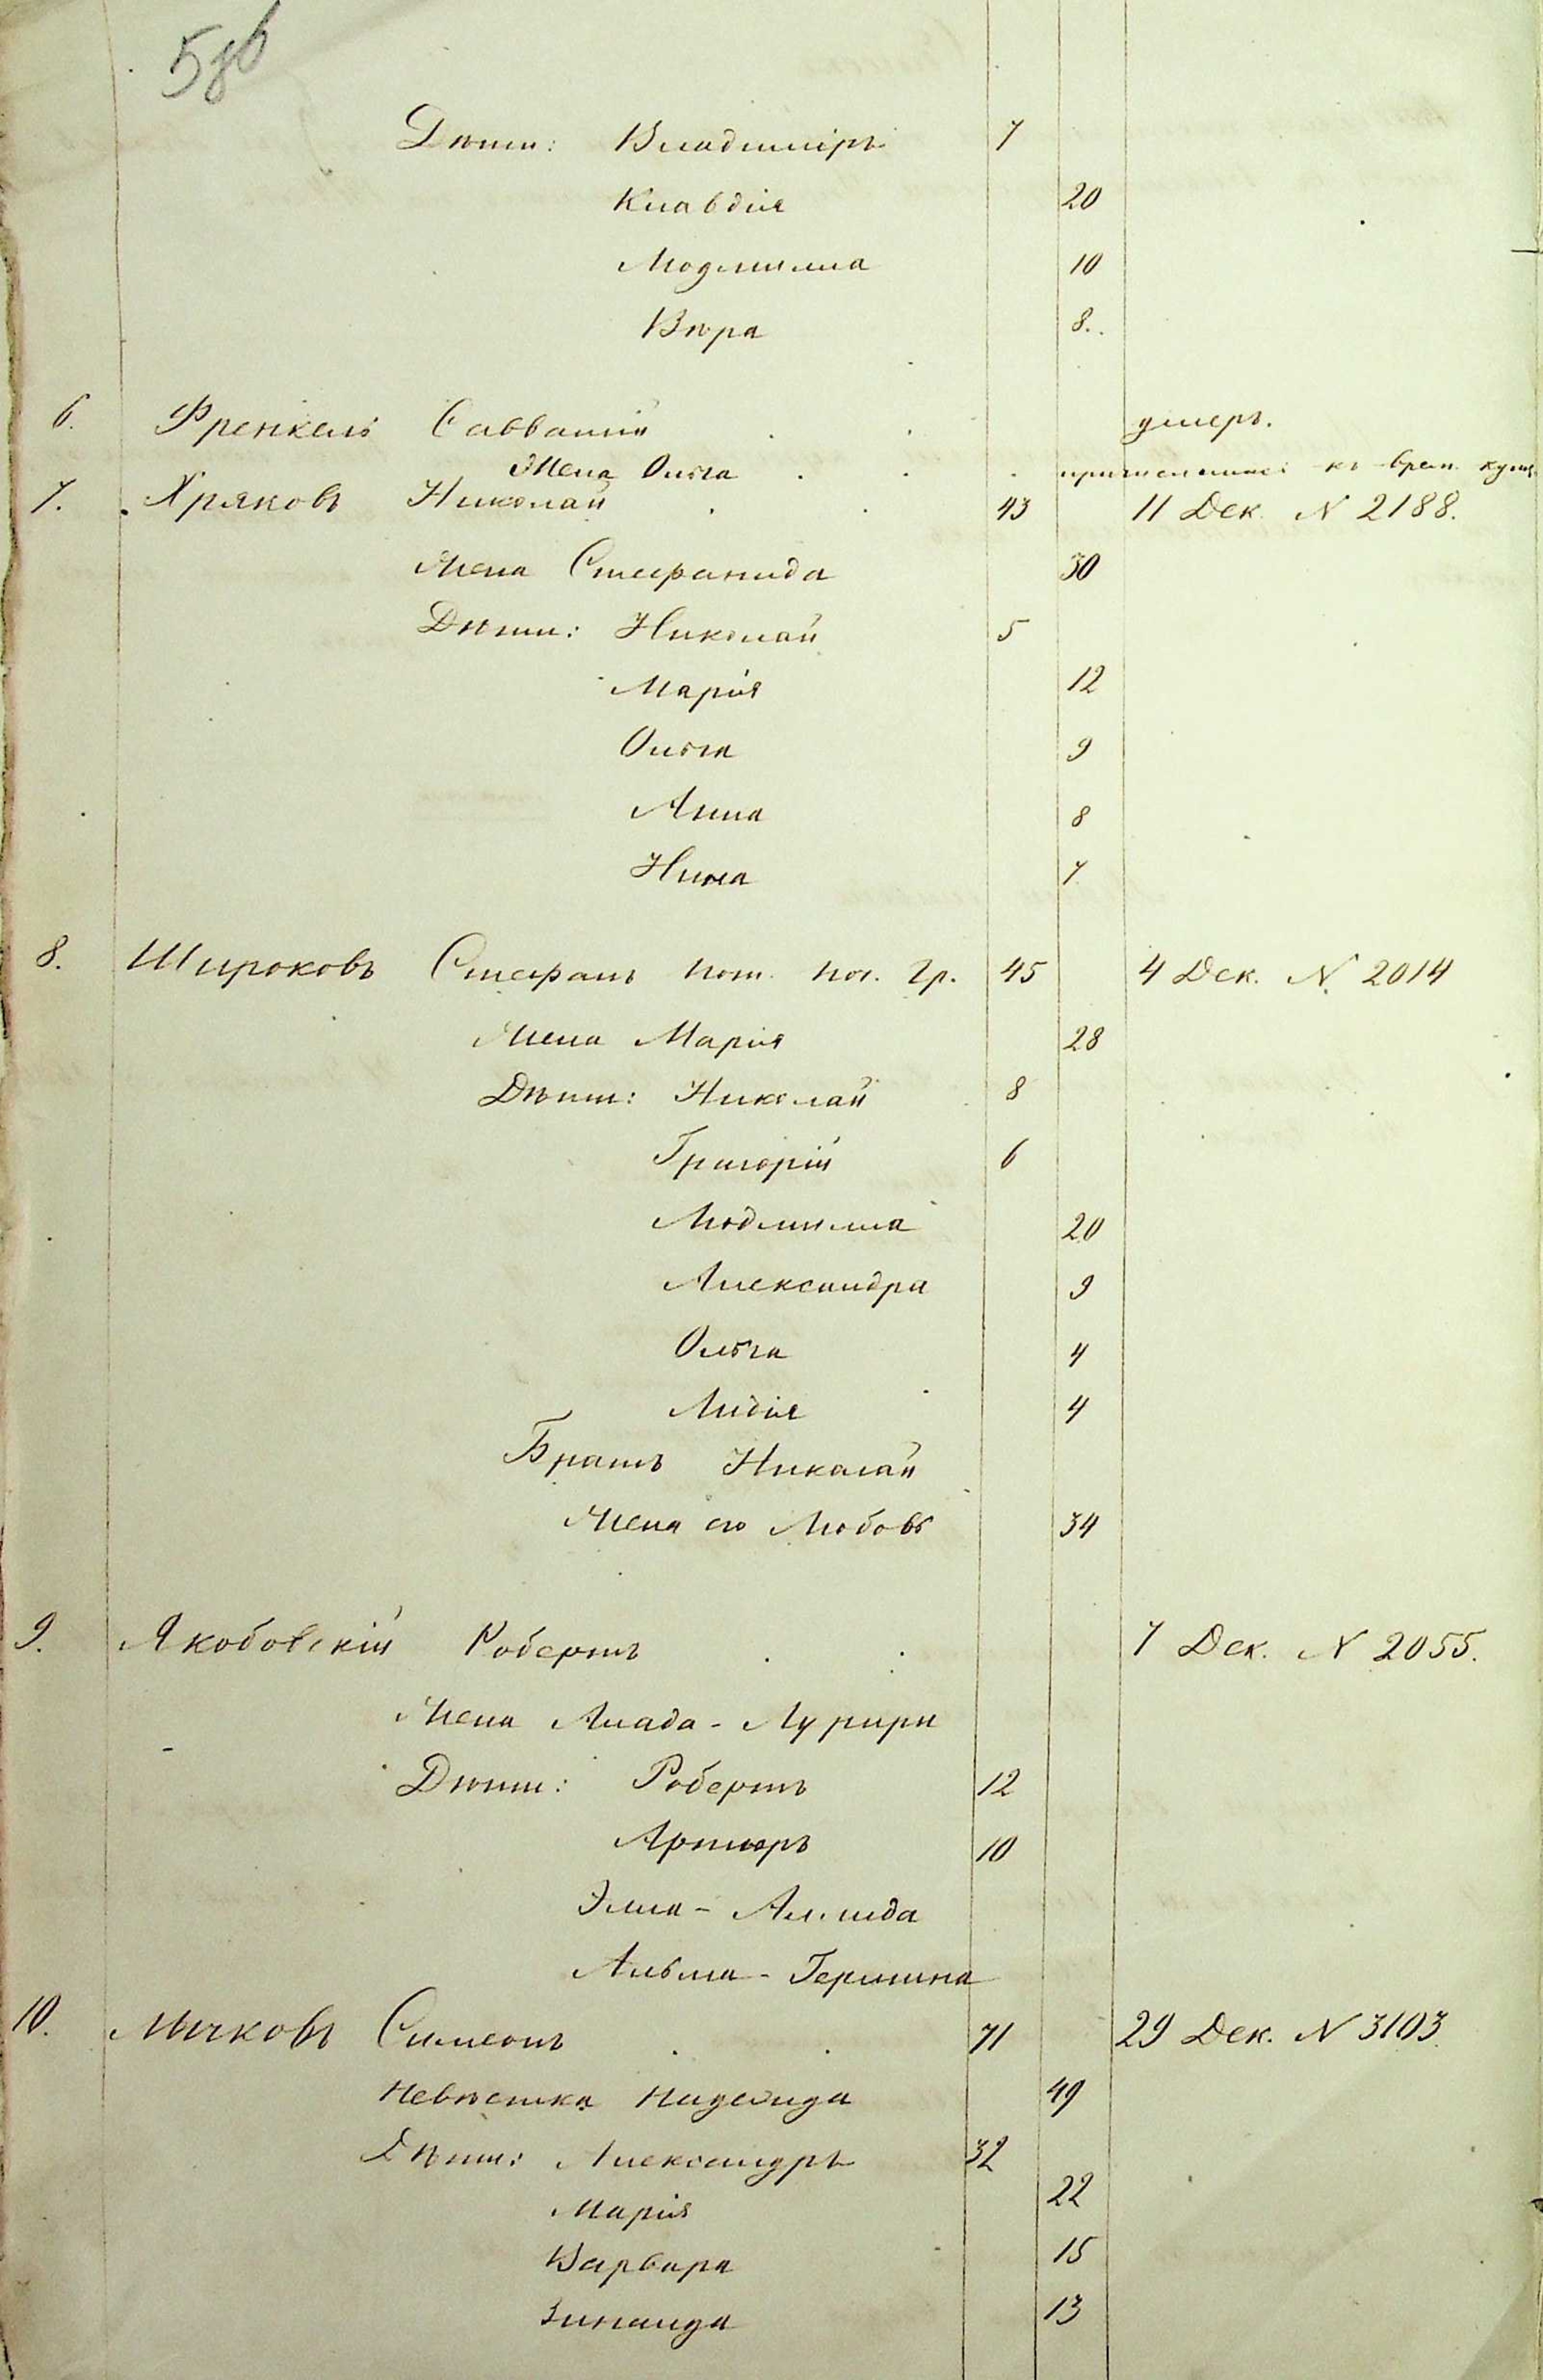 Дѣти: Владиміръ 7
Клавдія 20
Людмилла 10
Вѣра 8.
6. Френкель Савватій умеръ.
Жена Ольга къ врем. купц.
7. Хряковъ Николай 43 11 Дек. N 2188.
Жена Стефанида 30
Дѣти: Николай 5
Марія 12
Ольга 9
Анна 8
Нина 7
8. Широковъ Стефанъ пот. поч. гр. 45 4 Дек. N. 2014
Жена Марія 28
Дѣти: Николай 8
Григорій 6
Людмилла 20
Александра 9
Ольга 4
Лидія 4
Братъ Николай
Жена его Любовь 34
9. Якобовскій Робертъ 7 Дек. N 2055.
Жена
Дѣти: Робертъ 12
Артюръ 10
Альма - Гермина
10. Лычковъ Симеонъ 71 29 Дек. N 3103.
Невѣстка Надежда 49
Дѣти: Александръ 32
Марія 22
Варвара 15
Зинаида 13